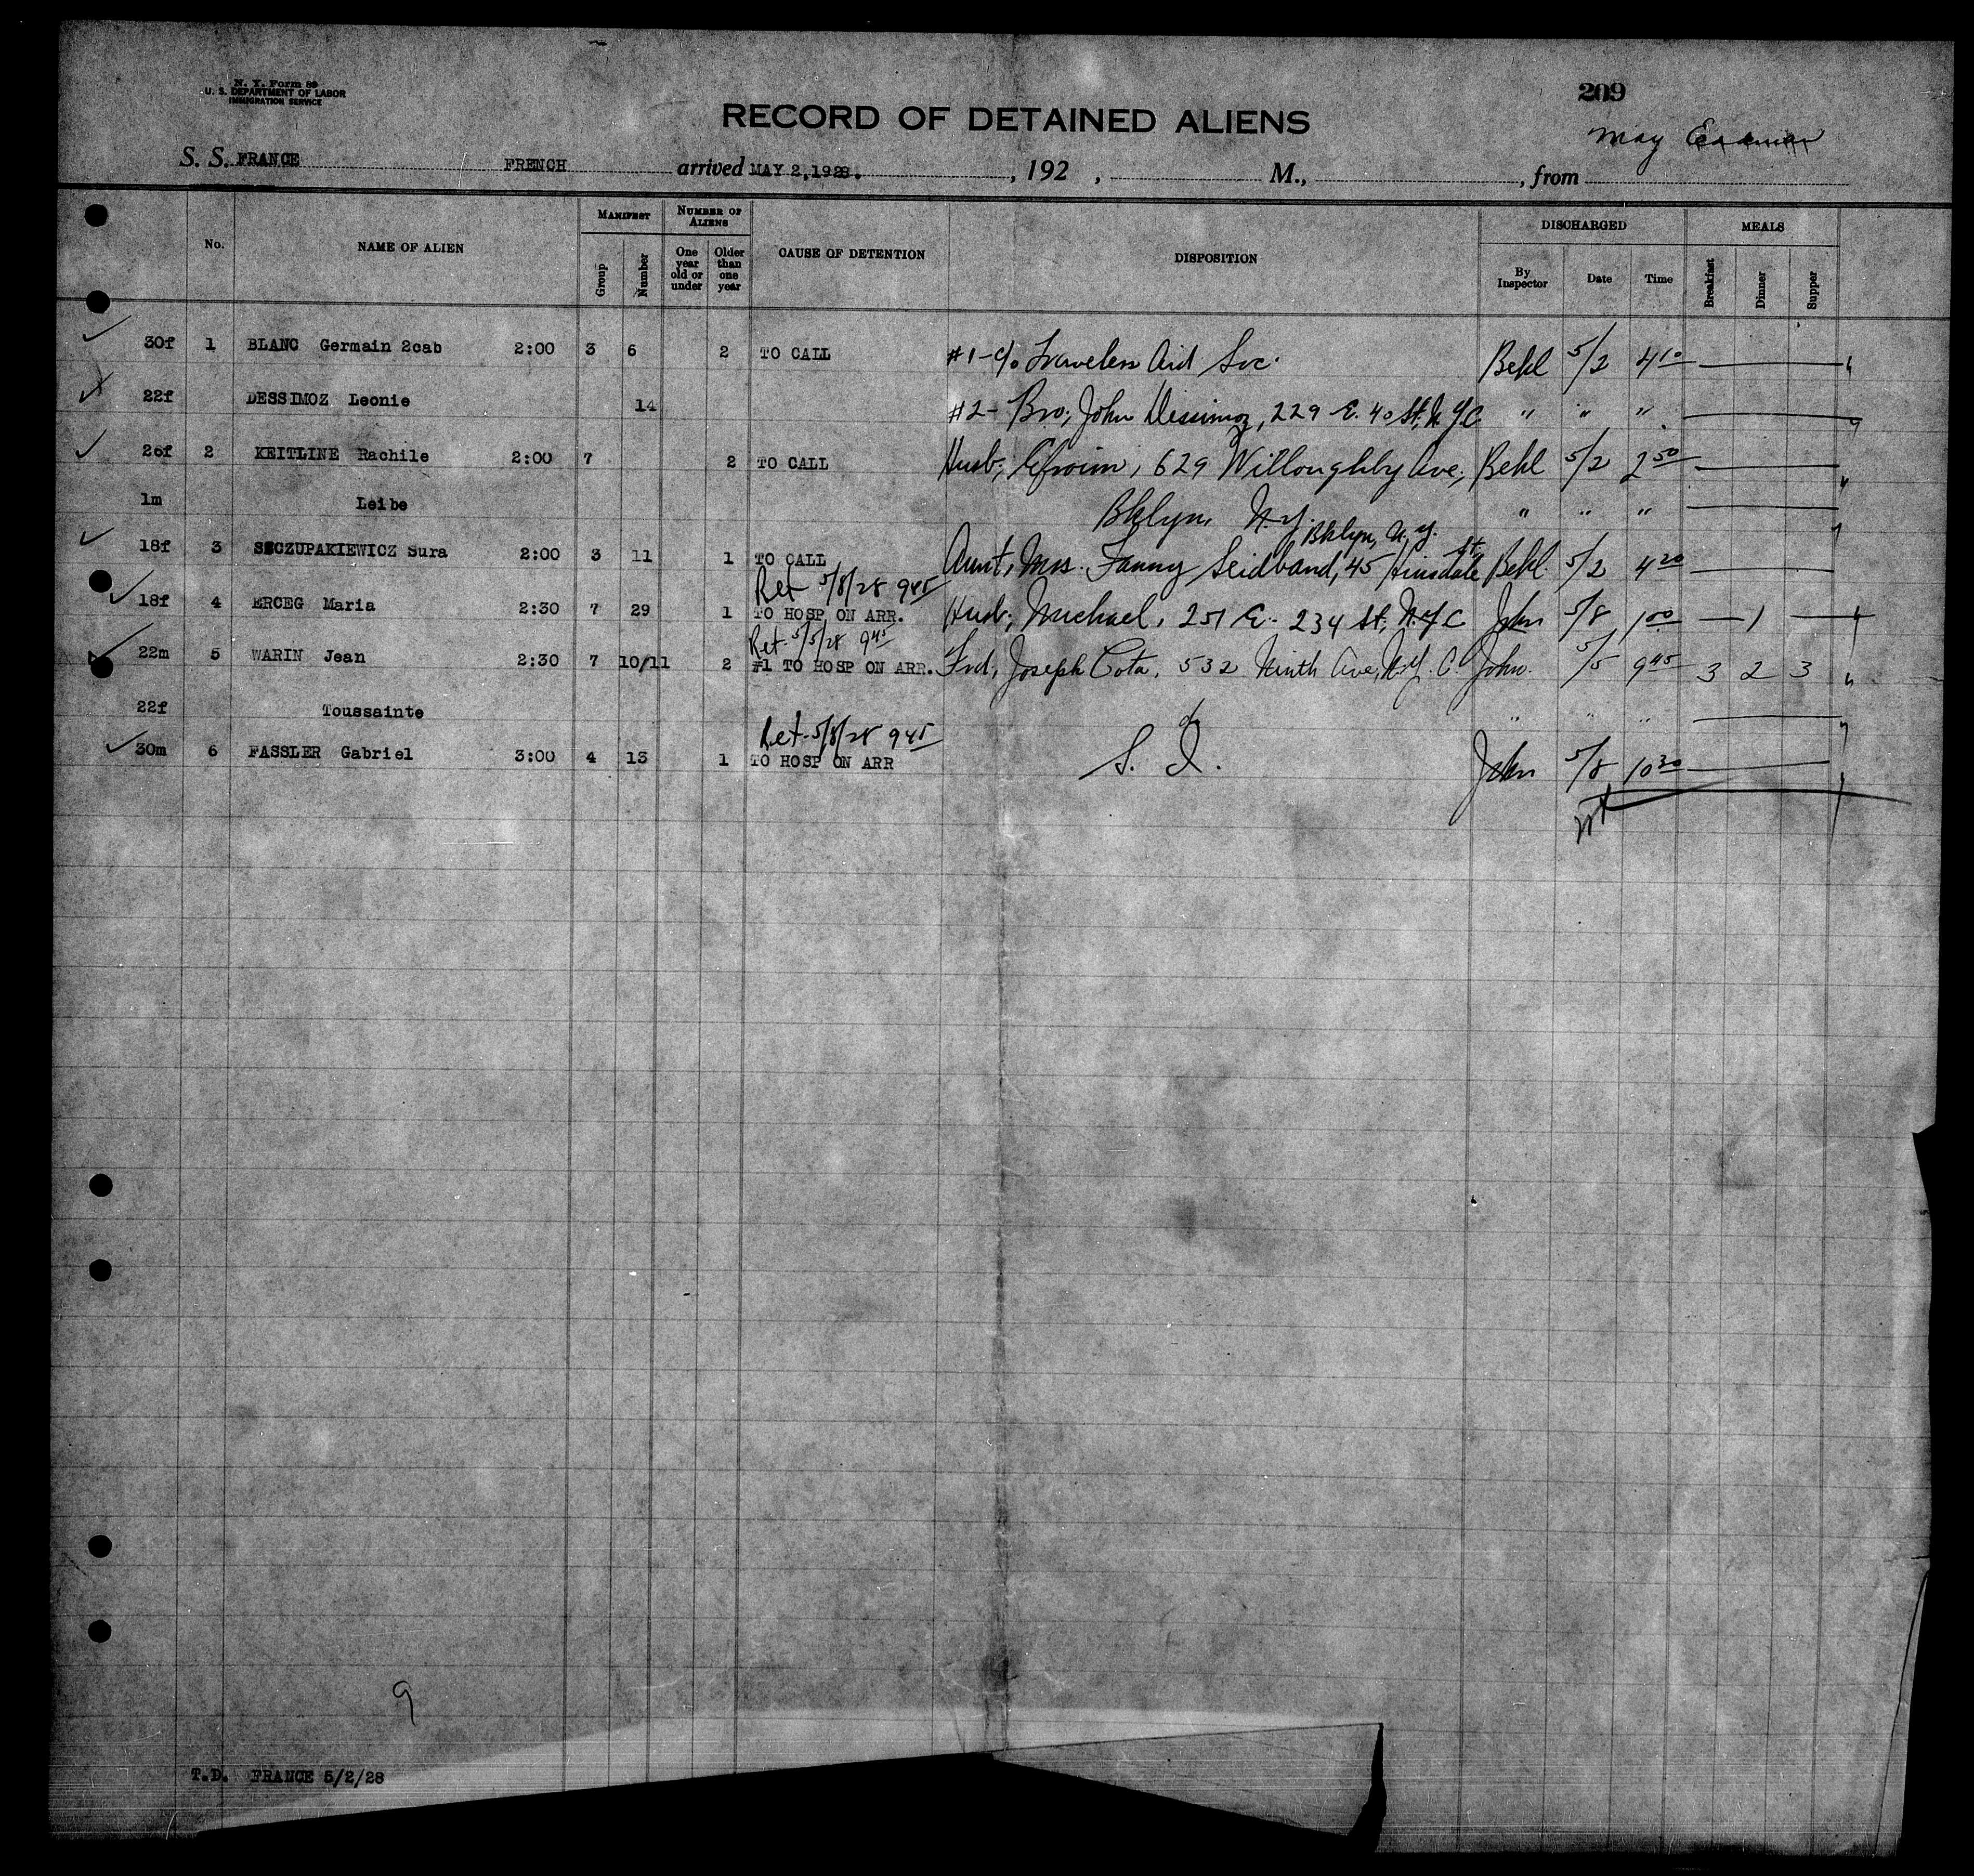 N. Y. Form 89
U. S. DEPARTMENT OF LABOR
IMMIGRATION SERVICE
209
RECORD OF DETAINED ALIENS
May
S. S. FRANCE FRENCH arrived MAY 2, 1928. , 192 , M., , from
No. NAME OF ALIEN MANIFEST Group Number NUMBER OF ALIENS One year old or under Older than one year CAUSE OF DETENTION DISPOSITION DISCHARGED By Inspector Date Time MEALS Breakfast Dinner Supper
30f 1 BLANC Germain 2cab 2:00 3 6 2 TO CALL #1 - c/o Travelers Aid Soc. Behl 5/2 4 10
22f DESSIMOZ Leonie 14 #2 - Bro, John Dessimoz, 229 E. 40 St, N.Y.C " " "
26f 2 KEITLINE Rachile 2:00 7 2 TO CALL Husb, Efroim, 629 Willoughby Ave, Behl 5/2 2 50
1m Leibe Bklyn, N.Y. " " "
Bklyn, N.Y.
18f 3 SZCZUPAKIEWICZ Sura 2:00 3 11 1 TO CALL Aunt, Mrs. Fanny Seidband, 45 Hinsdale St Behl 5/2 4 20
Ret 5/8/28 9 45
18f 4 ERCEG Maria 2:30 7 29 1 TO HOSP ON ARR. Husb, Michael, 251 E. 234 St, N.Y.C John 5/8 1 00 1
Ret-5/5/28 9 45
22m 5 WARIN Jean 2:30 7 10/11 2 #1 TO HOSP ON ARR. Frd, Joseph Cota, 532 Ninth Ave, N.Y.C. John 5/5 9 45 3 2 3
22f Toussainte " " "
Ret-5/8/28 9 45
30m 6 FASSLER Gabriel 3:00 4 13 1 TO HOSP ON ARR S. I. John 5/8 10 30
9
T.D. FRANCE 5/2/28